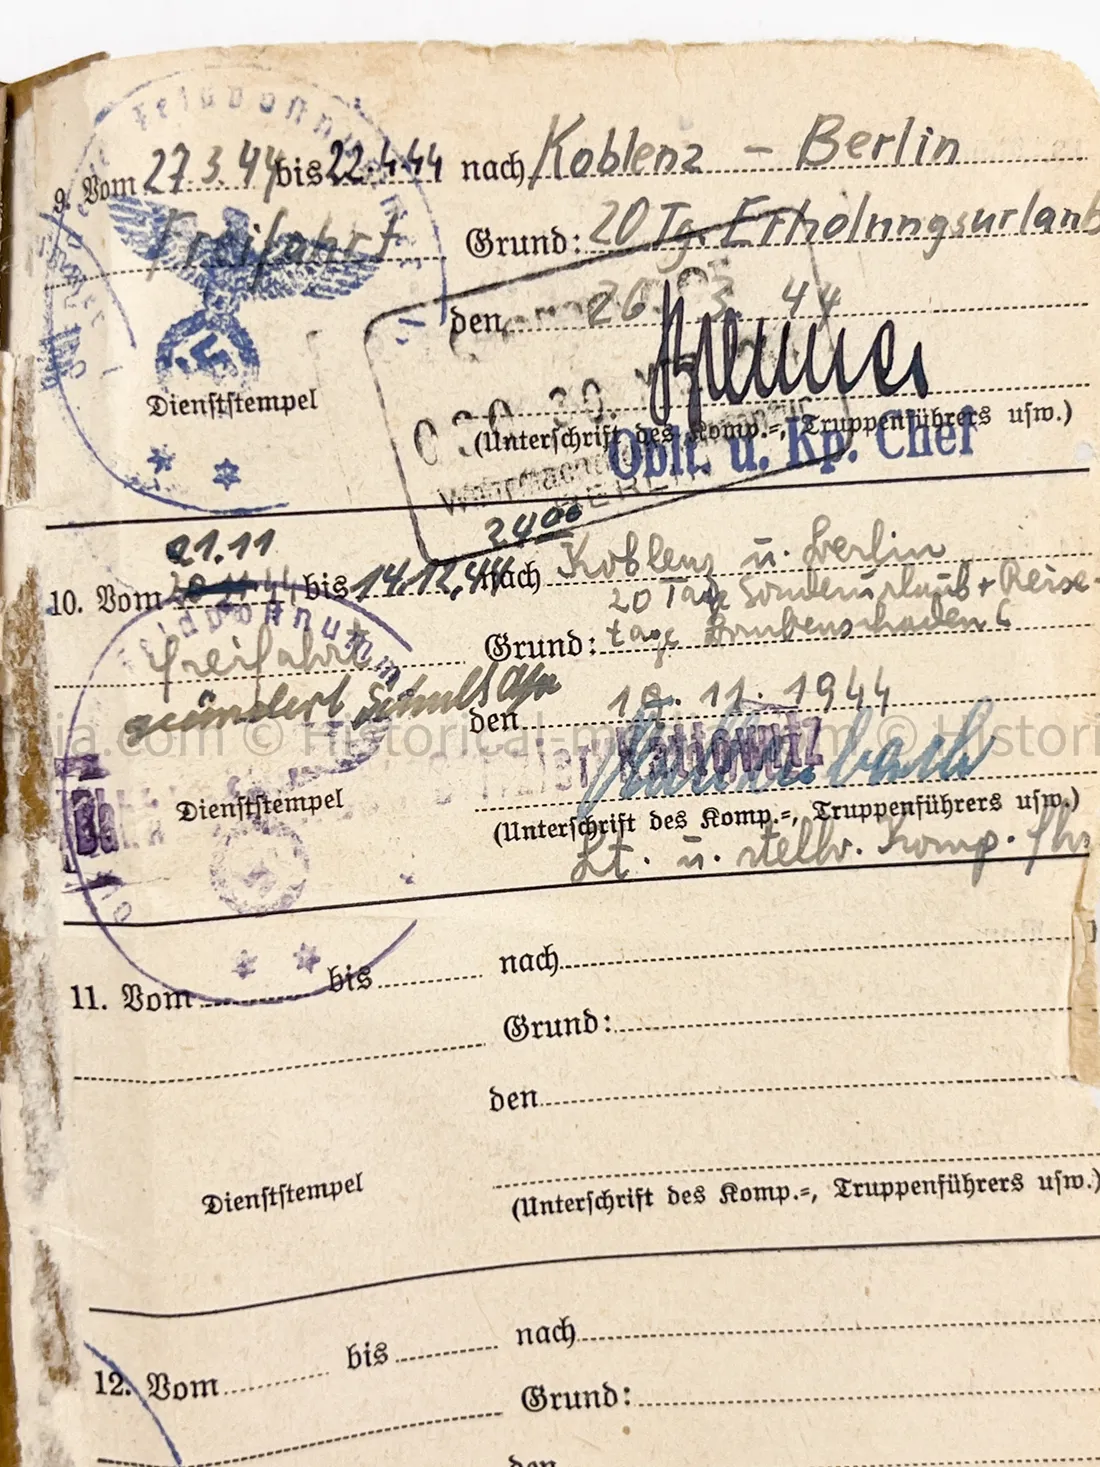 Feldpostnummer
9. Vom 27.3.44 bis 22.4.44 nach Koblenz – Berlin
Freifahrt Grund: 20 Tg. Erholungsurlaub
den 26. 3. 44
Dienststempel
(Unterschrift des Komp.=, Truppenführers usw.)
Oblt. u. Kp. Chef
BERLIN
21.11 24 00
10. Vom 20.11.44 bis 14.12.44 nach Koblenz u. Berlin
20 Tage Sonderurlaub + Reise-
Freifahrt Grund: tage Bombenschaden C
geändert Schulz
den 19. 11. 1944
Kattowitz
Dienststempel
(Unterschrift des Komp.=, Truppenführers usw.)
Lt. u. stellv. Komp. Fhr
11. Vom bis nach
Grund:
den
Dienststempel
(Unterschrift des Komp.=, Truppenführers usw.)
12. Vom bis nach
Grund:
den
© Historical-